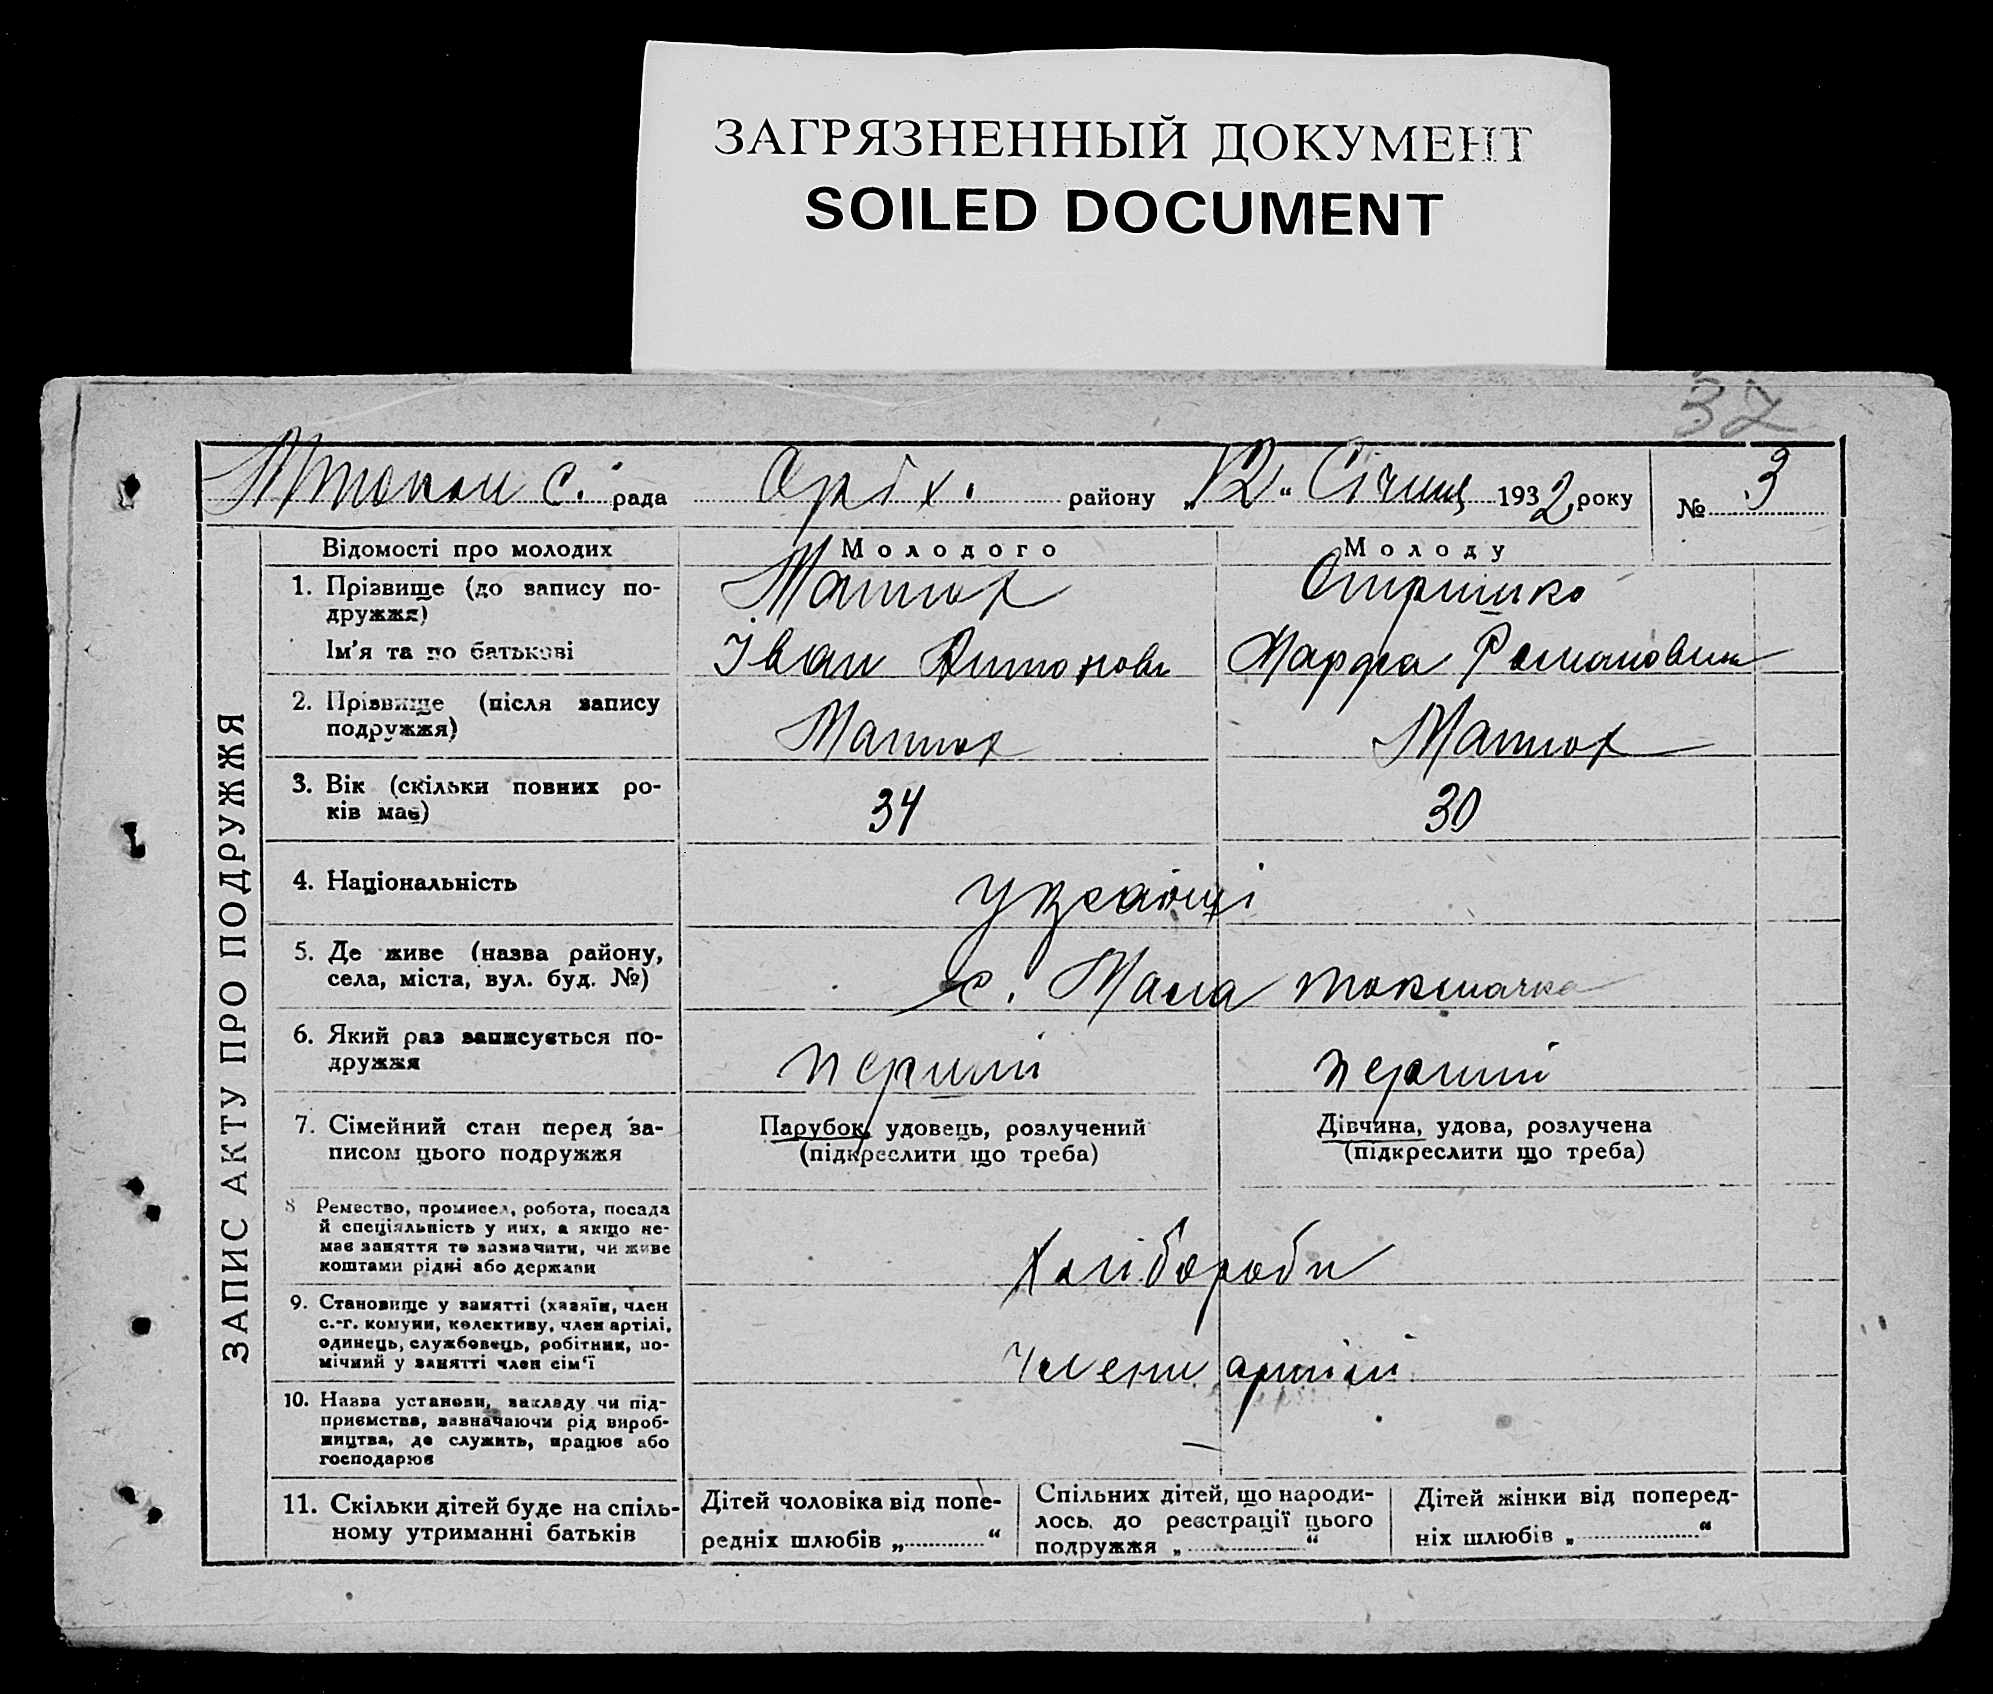 ЗАГРЯЗНЕННЫЙ ДОКУМЕНТ
SOILED DOCUMENT
37
с. рада Оріх. району „12“ Січня 1932 року № 3
ЗАПИС АКТУ ПРО ПОДРУЖЖЯ
Відомості про молодих Молодого Молоду
1. Прізвище (до запису по-
дружжя) Матюх
Ім'я та по батькові Іван Антонов Марфа Романовна
2. Прізвище (після запису
подружжя) Матюх Матюх
3. Вік (скільки повних ро-
ків має) 34 30
4. Національність Українці
5. Де живе (назва району,
села, міста, вул. буд. №) с. Мала Токмачка
6. Який раз записується по-
дружжя перший перший
7. Сімейний стан перед за-
писом цього подружжя
Парубок, удовець, розлучений
(підкреслити що треба)
Дівчина, удова, розлучена
(підкреслити що треба)
8 Ремество, промисел, робота, посада
й спеціяльність у них, а якщо не-
має заняття то зазначити, чи живе
коштами рідні або держави Хлібороби
9. Становище у занятті (хазяїн, член
с.-г. комуни, колективу, член артілі,
одинець, службовець, робітник, по-
мічний у занятті член сім'ї Члени артілі
10. Назва установи, закладу чи під-
приємства, зазначаючи рід вироб-
ництва, де служить, працює або
господарює —
11. Скільки дітей буде на спіль-
ному утриманні батьків
Дітей чоловіка від попе-
редніх шлюбів „ “
Спільних дітей, що народи-
лось до реєстрації цього
подружжя „ “
Дітей жінки від поперед-
ніх шлюбів „ “